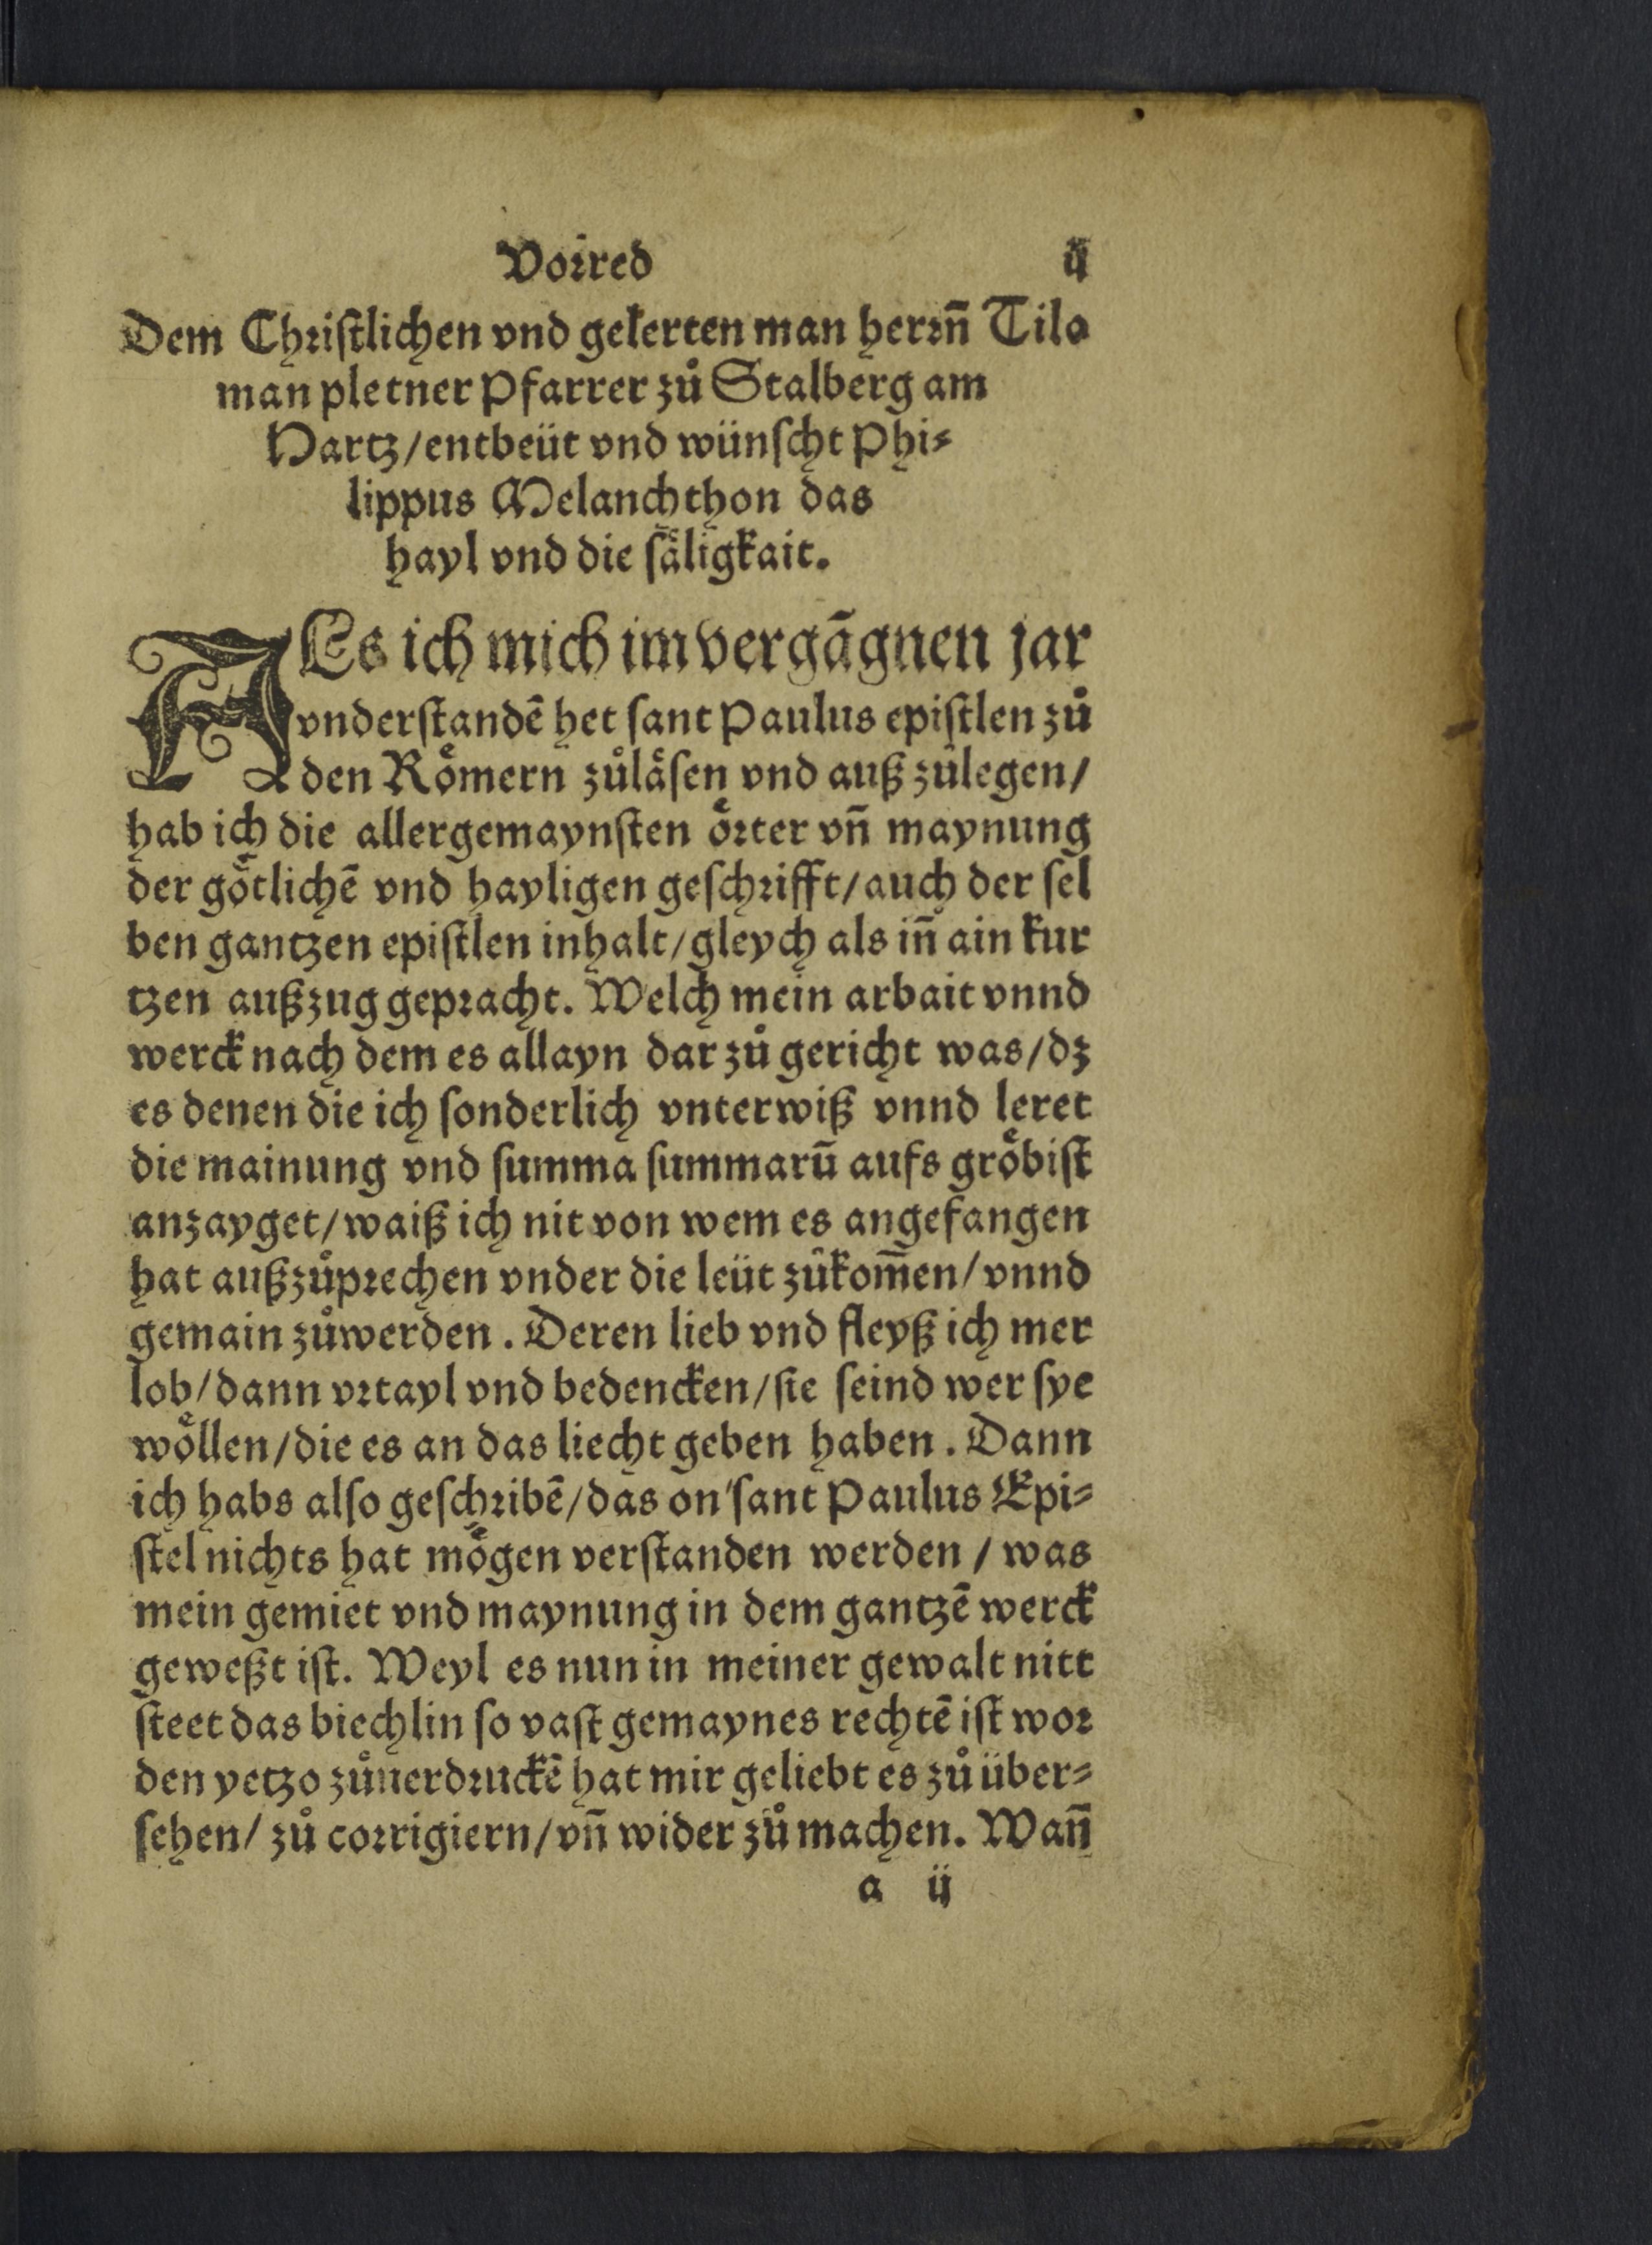 Vorred ij
Dem Chriſtlichen vnd gelerten man herrn̄ Tilo
man pletner Pfarrer zů Stalberg am
Hartz/entbeüt vnd wünſcht Phi⸗
lippus Melanchthon das
hayl vnd die ſäligkait.
ALs ich mich im vergāgnen jar
vnderſtandē het ſant Paulus epiſtlen zů
den Roͤmern zůlaͤſen vnd auß zůlegen/
hab ich die allergemaynſten oͤrter vn̄ maynung
der goͤtlichē vnd hayligen geſchrifft/auch der ſel
ben gantzen epiſtlen inhalt/gleych als in̄ ain kur
tzen außzug gepracht. Welch mein arbait vnnd
werck nach dem es allayn dar zů gericht was/dz
es denen die ich ſonderlich vnterwiß vnnd leret
die mainung vnd ſumma ſummarū aufs groͤbiſt
anzayget/waiß ich nit von wem es angefangen
hat außzůprechen vnder die leüt zůkom̄en/vnnd
gemain zůwerden. Deren lieb vnd fleyß ich mer
lob/dann vrtayl vnd bedencken/ſie ſeind wer ſye
woͤllen/die es an das liecht geben haben. Dann
ich habs alſo geſchribē/das on ſant Paulus Epi⸗
ſtel nichts hat moͤgen verſtanden werden/was
mein gemiet vnd maynung in dem gantzē werck
geweßt iſt. Weyl es nun in meiner gewalt nitt
ſteet das biechlin ſo vaſt gemaynes rechtē iſt wor
den yetzo zůuerdruckē hat mir geliebt es zů über⸗
ſehen/zů corrigiern/vn̄ wider zů machen. Wan̄
a ij